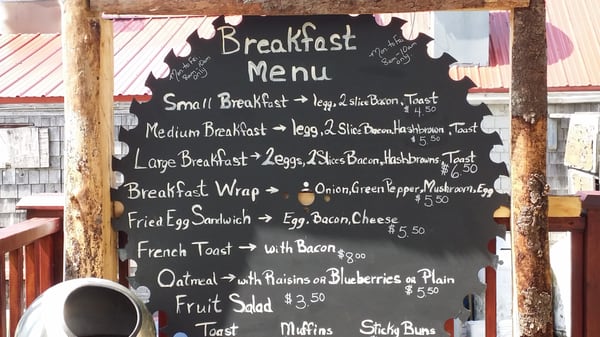 Breakfast
Menu
Mon to Fri
8am-10am
only
Mon to Fri
8am-10am
only
Small Breakfast → 1egg, 2 slice Bacon, Toast
$4.50
Medium Breakfast → 1egg, 2 Slice Bacon, Hashbrown, Toast
$5.50
Large Breakfast → 2eggs, 2 Slices Bacon, Hashbrowns, Toast
$6.50
Breakfast Wrap → Onion, Green Pepper, Mushroom, Egg
$5.50
Fried Egg Sandwich → Egg, Bacon, Cheese
$5.50
French Toast → with Bacon
$8.00
Oatmeal → with Raisins or Blueberries or Plain
$5.50
Fruit Salad $3.50
Toast Muffins Sticky Buns